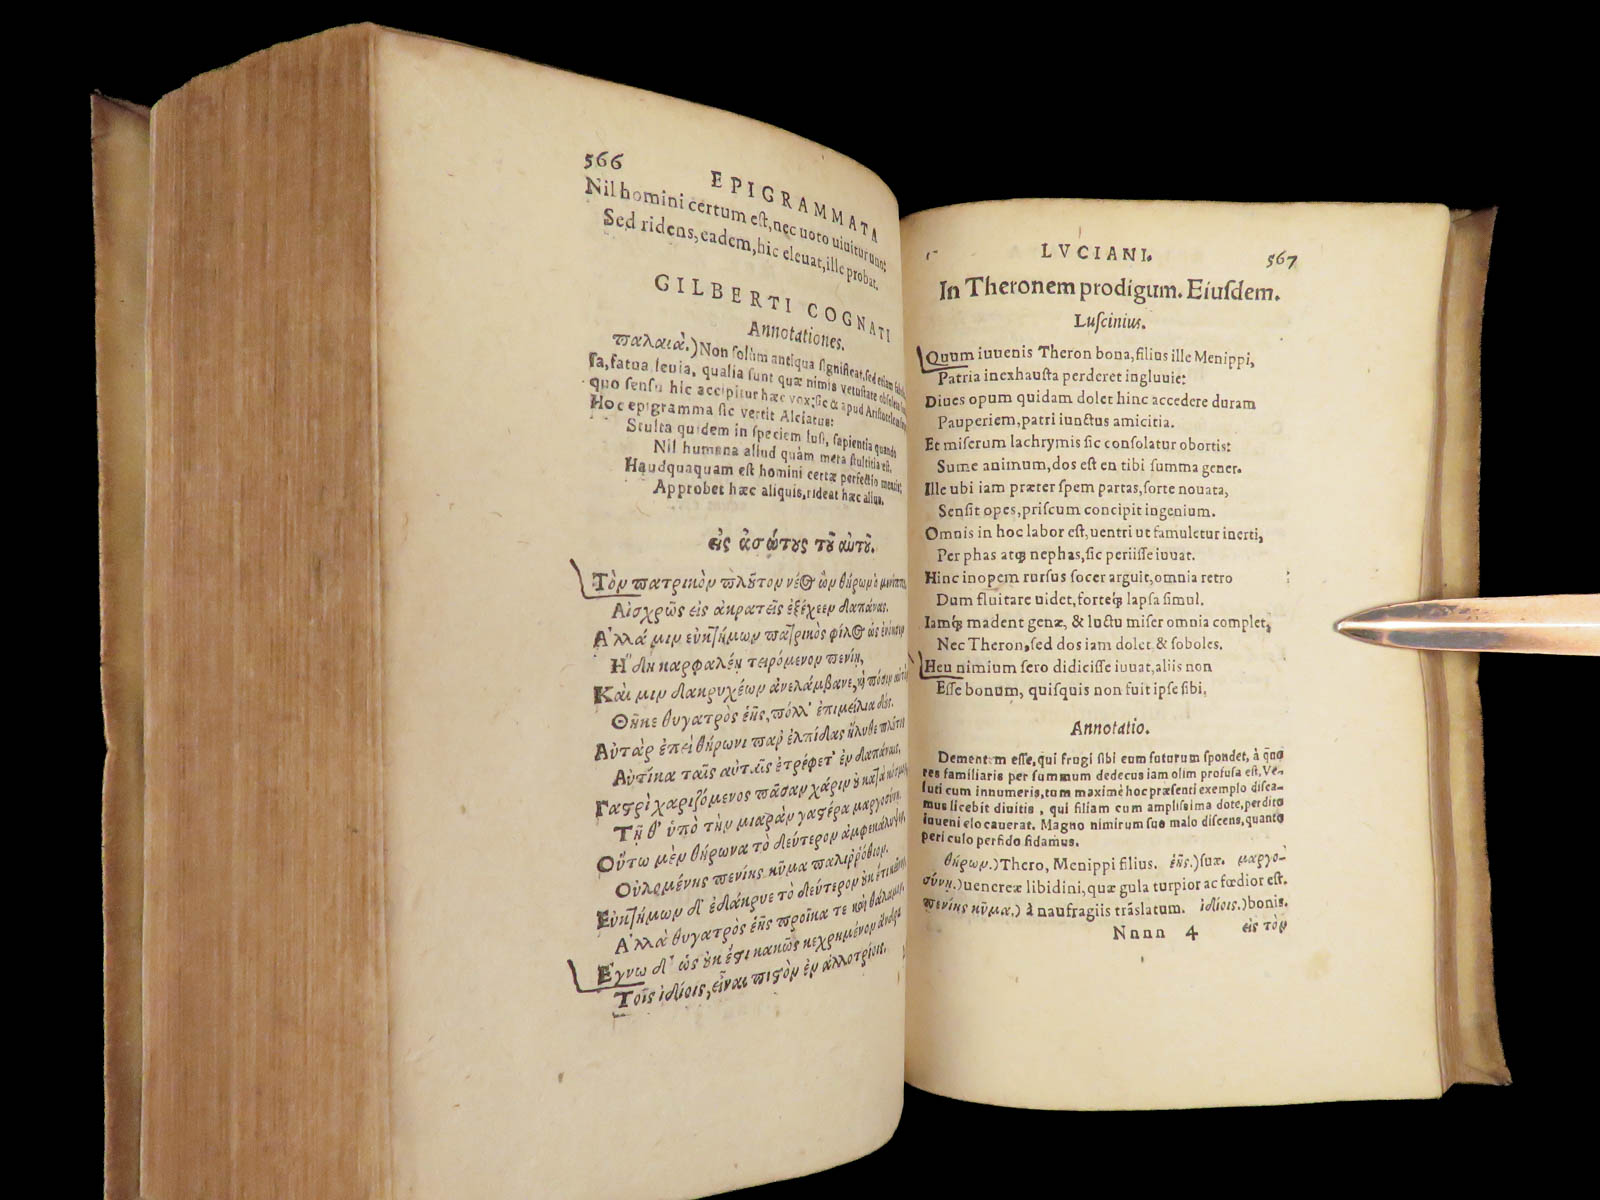 566
EPIGRAMMATA
Nil homini certum eſt, nec uoto uiuitur uno:
Sed ridens, eadem, hic eleuat, ille probat.
GILBERTI COGNATI
Annotationes.
παλαιὰ.) Non ſolùm antiqua ſignificat, ſed etiam
ſa, fatua, leuia, qualia ſunt quæ nimis vetuſtate
quo ſenſu hic accipitur hæc vox: ſic & apud
Hoc epigramma ſic vertit Alciatus:
Stulta quidem in ſpeciem luſi, ſapientia quando
Nil humana aliud quàm mera ſtultitia eſt.
Haudquaquam eſt homini certæ perfectio mentis:
Approbet hæc aliquis, rideat hæc alius.
εἰς ἀσώτους τοῦ αὐτοῦ.
Τὸν πατρικὸν πλοῦτον νέος ὢν θήρων ὁ
Αἰσχρῶς εἰς ἀκρατεῖς ἐξέχεεν δαπάνας.
Ἀλλά μιν εὐκτήμων πατρικὸς φίλος ὡς ἐνόησεν
Ἤδη καρφαλέῃ τειρόμενον πενίῃ,
Καὶ μιν δακρυχέων ἀνελάμβανε, καὶ πόσιν αὐτὸν
Θῆκε θυγατρὸς ἑῆς, πόλλ' ἐπιμείλια δούς.
Αὐτὰρ ἐπεὶ θήρωνι παρ' ἐλπίδας ἤλυθε πλοῦτος
Αὐτίκα ταῖς αὐταῖς ἐτρέφετ' ἐν δαπάναις,
Γαστρὶ χαριζόμενος πᾶσαν χάριν οὐ κατὰ κόσμον,
Τῇ θ' ὑπὸ τὴν μιαρὰν γαστέρα μαργοσύνῃ.
Οὕτω μὲν θήρωνα τὸ δεύτερον ἀμφεκάλυψεν,
Οὐλομένης πενίης κῦμα παλιῤῥόθιον.
Εὐκτήμων δ' ἐδάκρυε τὸ δεύτερον οὐκ ἔτι κεῖνον,
Ἀλλὰ θυγατρὸς ἑῆς προῖκά τε καὶ θάλαμον.
Ἔγνω δ' ὡς οὐκ ἔστι κακῶς κεχρημένον ἄνδρα
Τοῖς ἰδίοις, εἶναι πιστὸν ἐν ἀλλοτρίοις.
LVCIANI.
567
In Theronem prodigum. Eiuſdem.
Luſcinius.
Quum iuuenis Theron bona, filius ille Menippi,
Patria inexhauſta perderet ingluuie:
Diues opum quidam dolet hinc accedere duram
Pauperiem, patri iunctus amicitia.
Et miſerum lachrymis ſic conſolatur obortis:
Sume animum, dos eſt en tibi ſumma gener.
Ille ubi iam præter ſpem partas, ſorte nouata,
Senſit opes, priſcum concipit ingenium.
Omnis in hoc labor eſt, uentri ut famuletur inerti,
Per phas atq; nephas, ſic periiſſe iuuat.
Hinc inopem rurſus ſocer arguit, omnia retro
Dum fluitare uidet, forteq́; lapſa ſimul.
Iamq́; madent genæ, & luctu miſer omnia complet,
Nec Theron, ſed dos iam dolet & ſoboles.
Heu nimium ſero didiciſſe iuuat, aliis non
Eſſe bonum, quiſquis non fuit ipſe ſibi,
Annotatio.
Dementem eſſe, qui frugi ſibi eum futurum ſpondet, à quo
res familiaris per ſummum dedecus iam olim profuſa eſt, Ve-
luti cum innumeris, tum maximè hoc præſenti exemplo diſca-
mus licebit diuitis, qui filiam cum ampliſsima dote, perdito
iuueni elocauerat. Magno nimirum ſuo malo diſcens, quanto
periculo perfido fidamus.
θήρων.) Thero, Menippi filius. ἑῆς.) ſuæ. μαργο-
σύνῃ.) uenereæ libidini, quæ gula turpior ac fœdior eſt.
πενίης κῦμα.) à naufragiis trãslatum. ἰδίοις.) bonis.
Nnnn 4
εἰς τὸν